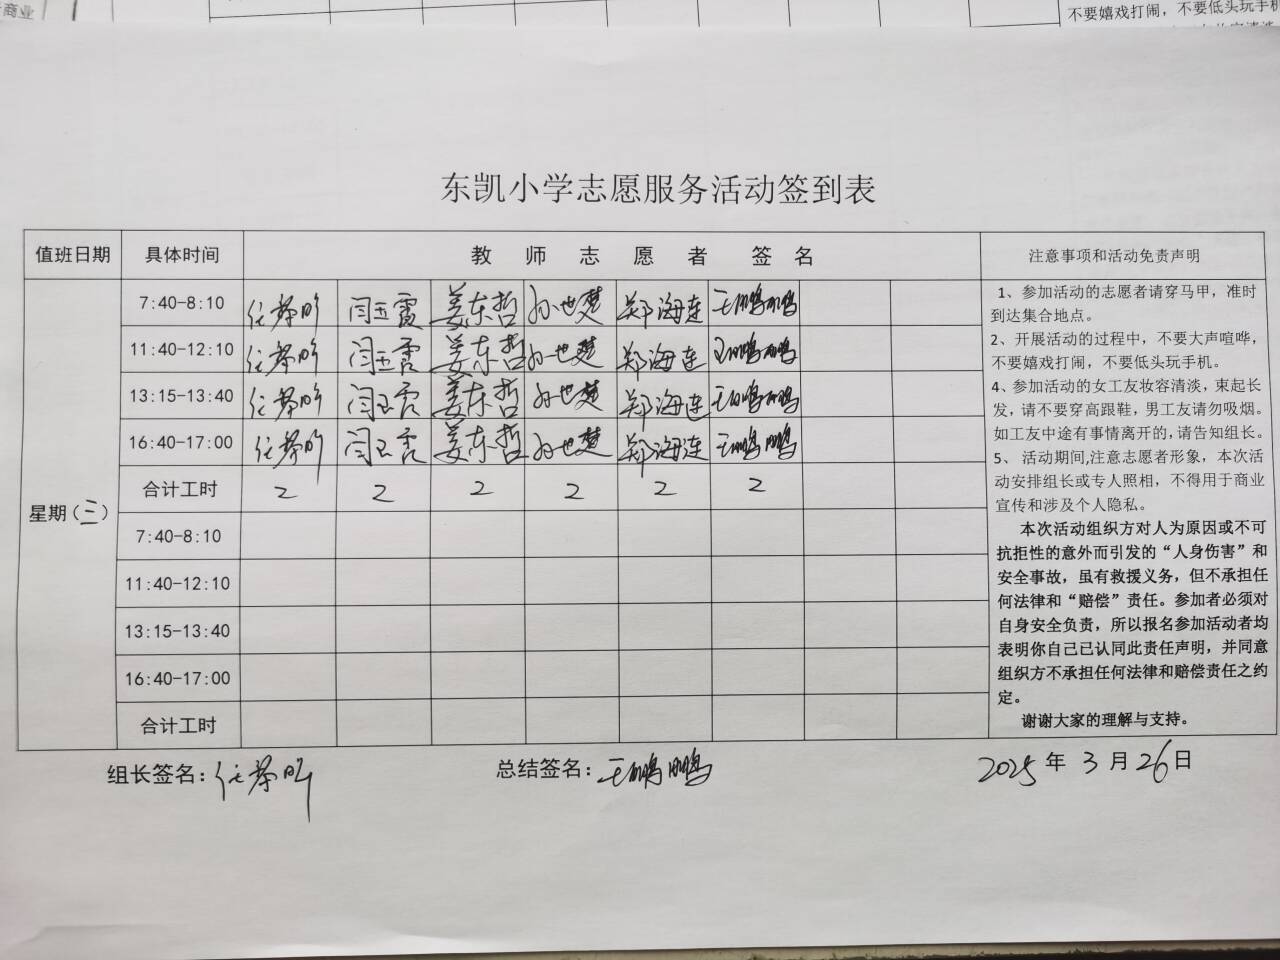 商业
不要嬉戏打闹，不要低头玩手机
东凯小学志愿服务活动签到表
值班日期 具体时间 教师志愿者签名 注意事项和活动免责声明
星期（三）
7:40-8:10 闫玉霞 姜东哲 孙世楚 郑海连 王鹏鹏
11:40-12:10 闫玉霞 姜东哲 孙世楚 郑海连 王鹏鹏
13:15-13:40 闫玉霞 姜东哲 孙世楚 郑海连 王鹏鹏
16:40-17:00 闫玉霞 姜东哲 孙世楚 郑海连 王鹏鹏
合计工时 2 2 2 2 2 2
7:40-8:10
11:40-12:10
13:15-13:40
16:40-17:00
合计工时
1、参加活动的志愿者请穿马甲，准时
到达集合地点。
2、开展活动的过程中，不要大声喧哗，
不要嬉戏打闹，不要低头玩手机。
4、参加活动的女工友妆容清淡，束起长
发，请不要穿高跟鞋，男工友请勿吸烟。
如工友中途有事情离开的，请告知组长。
5、 活动期间,注意志愿者形象，本次活
动安排组长或专人照相，不得用于商业
宣传和涉及个人隐私。
本次活动组织方对人为原因或不可
抗拒性的意外而引发的“人身伤害”和
安全事故，虽有救援义务，但不承担任
何法律和“赔偿”责任。参加者必须对
自身安全负责，所以报名参加活动者均
表明你自己已认同此责任声明，并同意
组织方不承担任何法律和赔偿责任之约
定。
谢谢大家的理解与支持。
组长签名： 总结签名：王鹏鹏 2025年3月26日